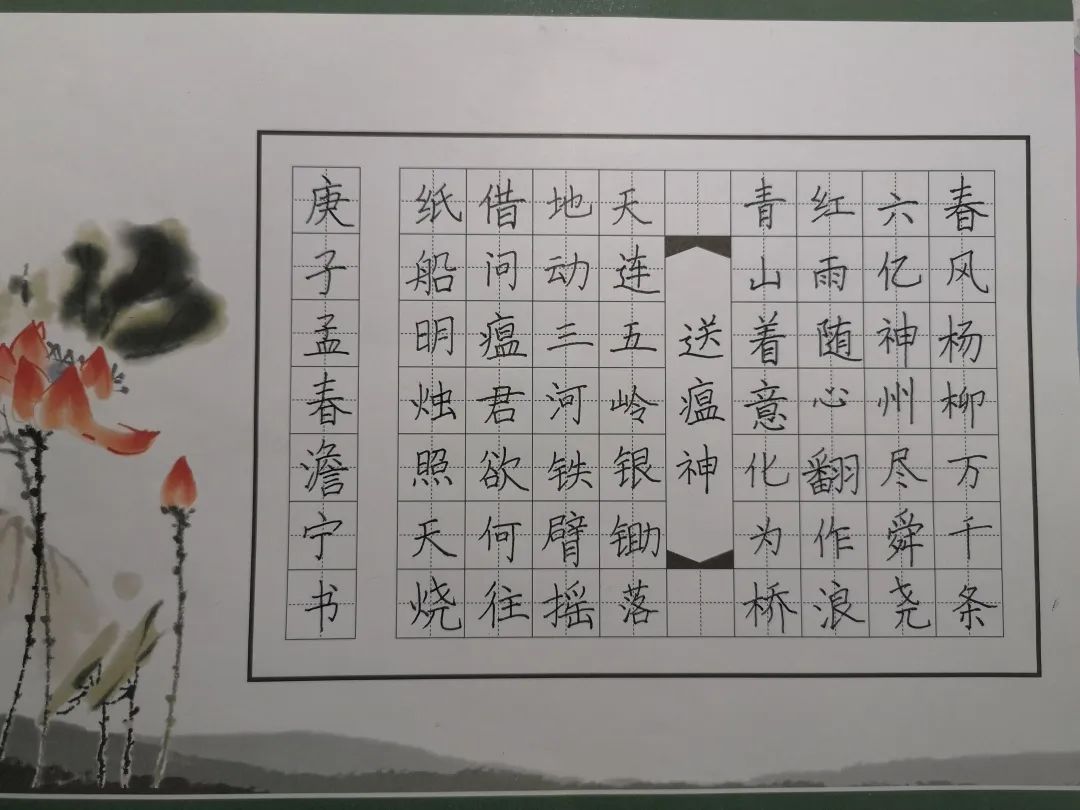 春风杨柳万千条
六亿神州尽舜尧
红雨随心翻作浪
青山着意化为桥
送瘟神
天连五岭银锄落
地动三河铁臂摇
借问瘟君欲何往
纸船明烛照天烧
庚子孟春澹宁书